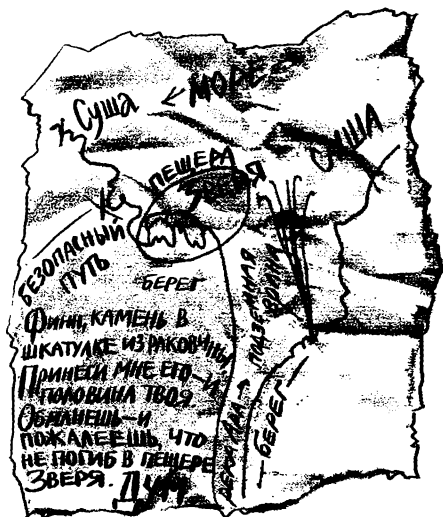 Суша
МОРЕ
СУША
ПЕЩЕРА
ЗВЕРЯ
БЕЗОПАСНЫЙ
ПУТЬ
БЕРЕГ
Финн, КАМЕНЬ В
ШКАТУЛКЕ ИЗ РАКОВИНЫ
ПРИНЕСИ МНЕ ЕГО—И
ПОЛОВИНА ТВОЯ
ОБМАНЕШЬ—И
ПОЖАЛЕЕШЬ, ЧТО
НЕ ПОГИБ В ПЕЩЕРЕ
ЗВЕРЯ.
—БЕРЕГ—